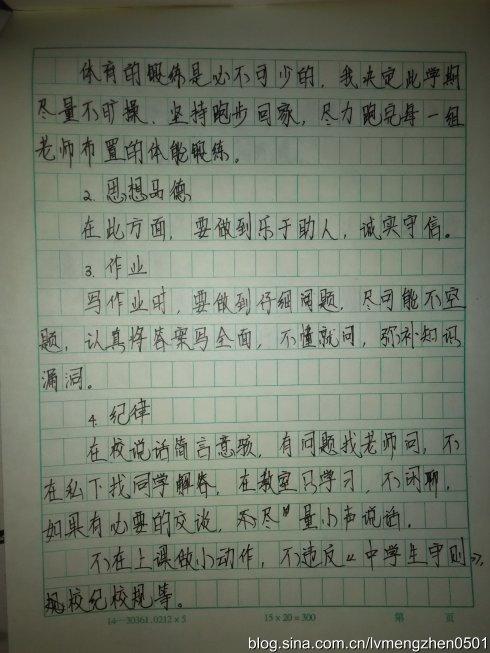 体育的锻练是必不可少的，我决定此学期
尽量不旷操，坚持跑步回家，尽力跑完每一组
老师布置的体能锻练。
2. 思想品德
在此方面，要做到乐于助人，诚实守信。
3. 作业
写作业时，要做到仔细阅题，尽可能不空
题，认真将答案写全面，不懂就问，弥补知识
漏洞。
4. 纪律
在校说话简言意骇，有问题找老师问，不
在私下找同学解答，在教室只学习，不闲聊，
如果有必要的交谈，尽量小声说话。
不在上课做小动作，不违反《中学生守则》，
校纪校规等。
14—30361.0212×5 15×20=300 第 页
blog.sina.com.cn/lvmengzhen0501